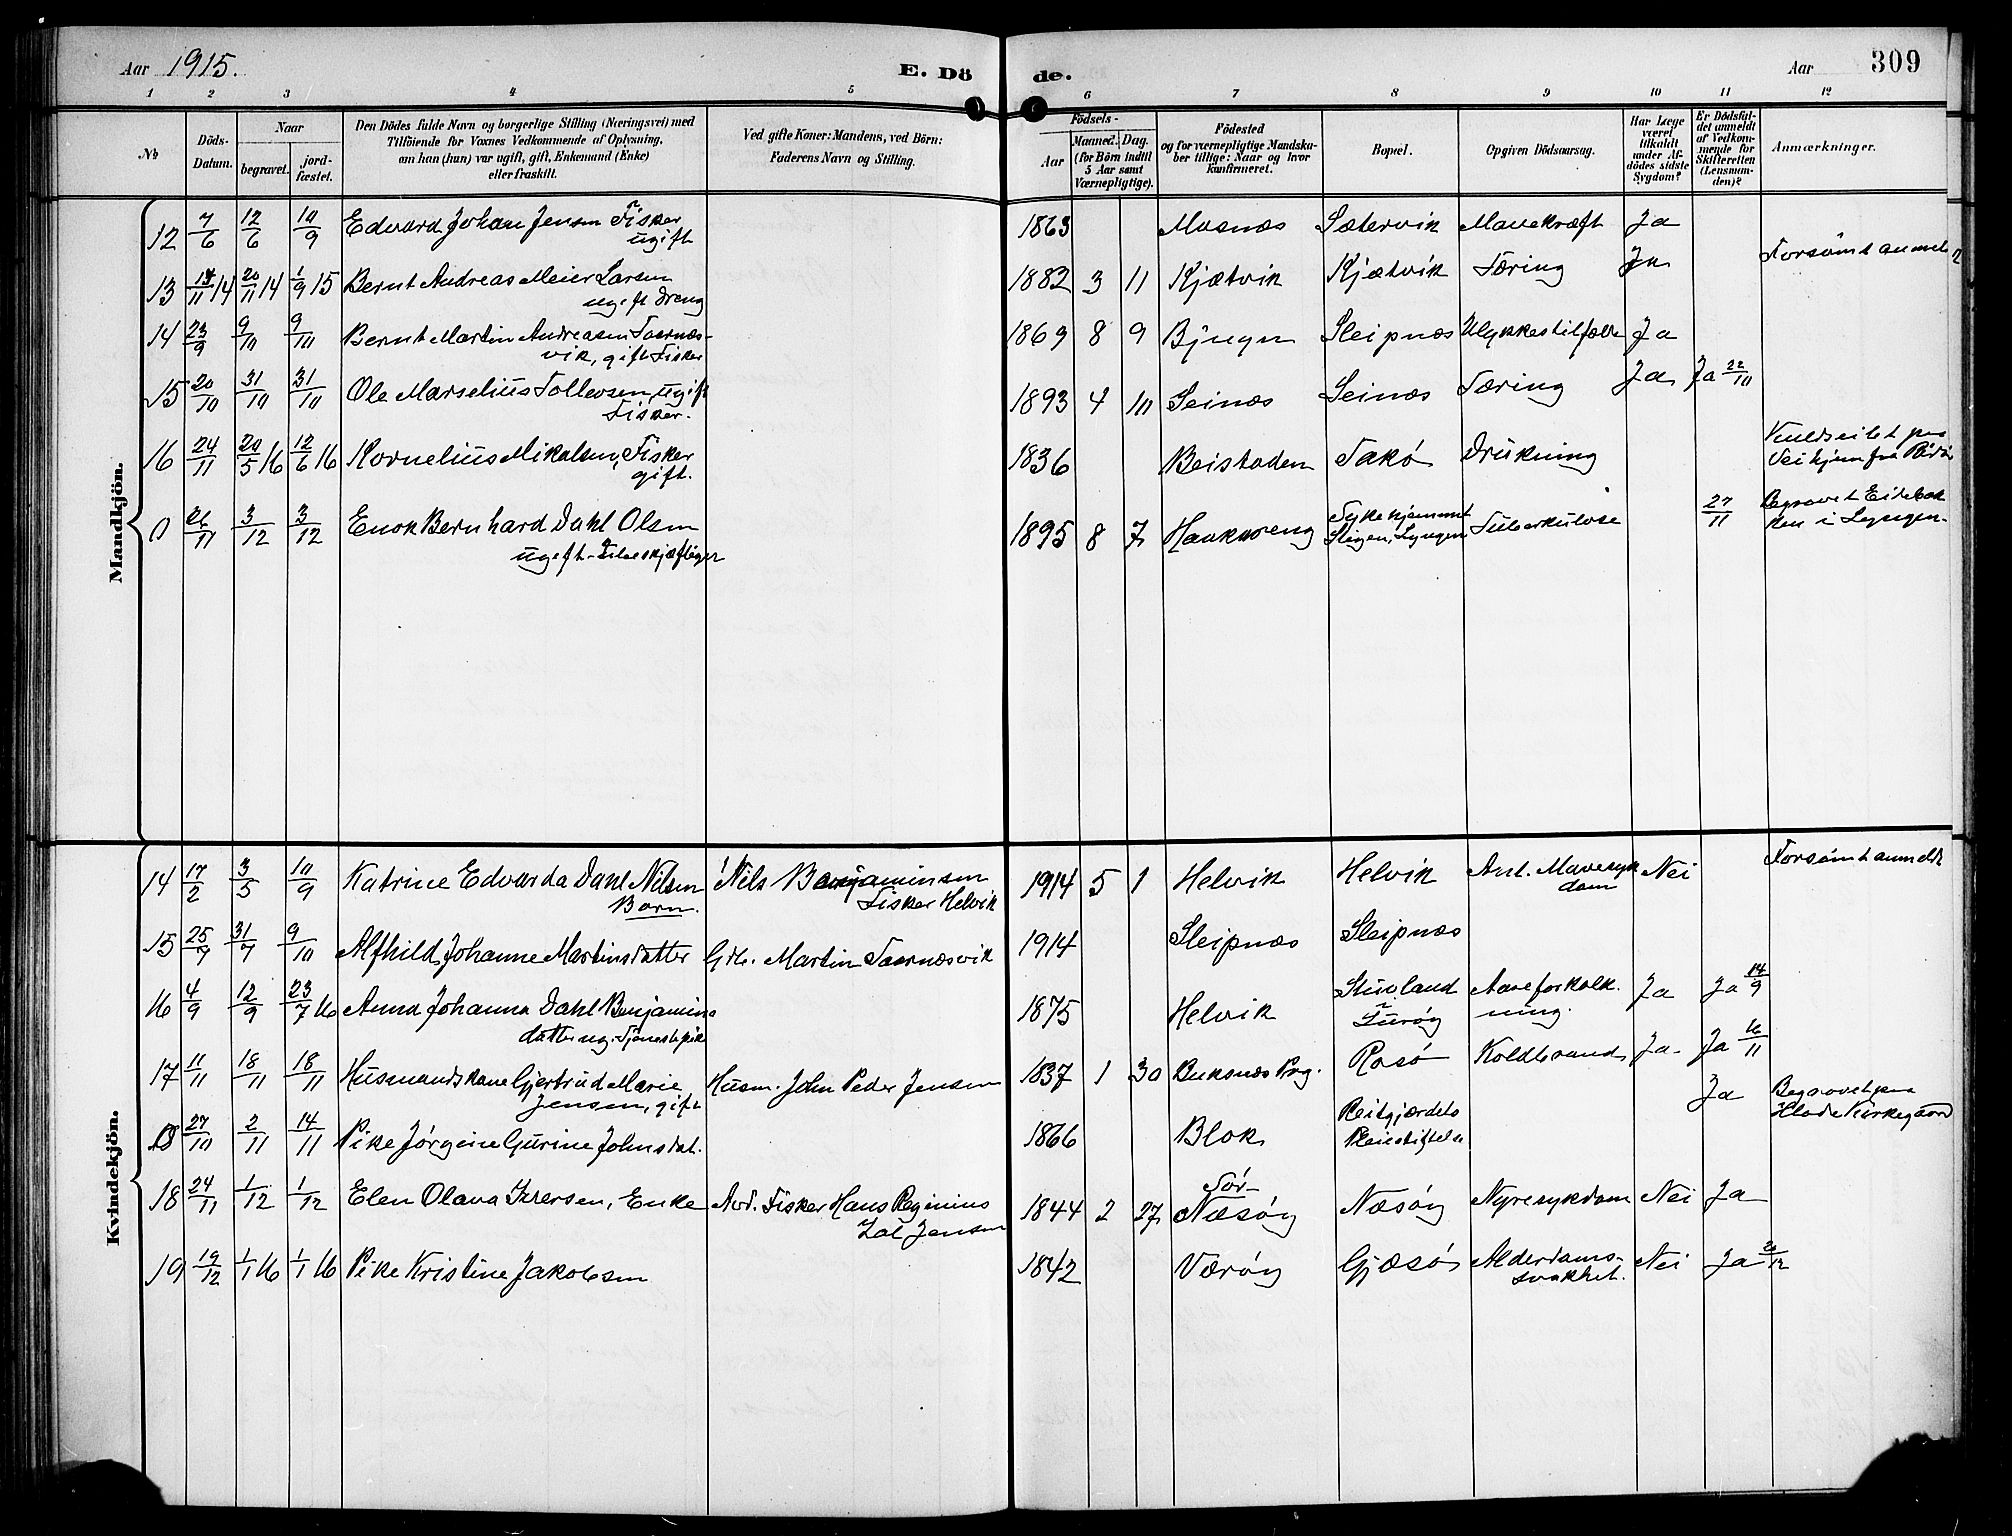 Aar 1915. E. Dö de. Aar 309
1 2 3 4 5 6 7 8 9 10 11 12
No
Döds-Datum.
Naar
begravet.
jord-fæstet.
Den Dödes fulde Navn og borgerlige Stilling (Næringsvei) med
Tilföiende for Voxnes Vedkommende af Oplysning,
om han (hun) var ugift, gift, Enkemand (Enke)
eller fraskilt.
Ved gifte Koner: Mandens, ved Börn:
Faderens Navn og Stilling.
Födsels-
Aar
Maaned. Dag.
(for Börn indtil
5 Aar samt
Værnepligtige).
Födested
og for værnepligtige Mandska-
ber tillige: Naar og hvor
konfirmeret.
Bopæl.
Opgiven Dödsaarsag.
Har Læge
været
tilkaldt
under Af-
dödes sidste
Sygdom?
Er Dödsfal-
det anmeldt
af Vedkom-
mende for
Skifteretten
(Lensman-
den)?
Anmærkninger.
Mandkjön.
12 7/6 12/6 10/9 Edvard Johan Jensen Fisker 1863 Mosnæs Sætervik Mavekræft Ja
ugift
13 17/11 14 20/11 14 1/9 15 Bernt Andreas Meier Larsen 1882 3 11 Kjætvik Kjætvik Tæring Ja Forsömt anmeldt
ugift dreng
14 23/9 9/10 9/10 Bernt Martin Andreasen Taarnæs- 1869 8 9 Bjugn Sleipnæs Ulykkestilfælde Ja
vik, gift Fisker
15 20/10 31/10 31/10 Ole Marselius Tollevsen, ugift 1893 4 10 Seinæs Seinæs Tæring Ja Ja 22/10
Fisker.
16 24/11 20/5 16 12/6 16 Kornelius Mikalsen, Fisker 1836 Beistaden Takö Drukning Kuldseilet paa
gift. Vei hjem fra
0 26/11 3/12 3/12 Enok Bernhard Dahl Olsen 1895 8 7 Haukøreng Sykehjemmet Tuberkulose 27/11 Begravet
ugift Steigen, Lyngen i Lyngen.
Kvindekjön.
14 17/2 3/5 10/9 Katrine Edvarda Dahl Nilsen Nils Benjaminsen 1914 5 1 Helvik Helvik Ant. Mavesyk- Nei Forsömt anmeldt
Barn. Fisker Helvik dom
15 25/7 31/7 9/10 Alfhild Johanne Martinsdatter Grb. Martin Taarnæsvik 1914 Sleipnæs Sleipnæs
16 4/9 12/9 23/7 16 Anna Johanna Dahl Benjamins 1875 Helvik Stuvland Aareforkalk- Ja Ja 14/9
datter ug. Tjenestepike Luröy ning.
17 11/11 18/11 18/11 Husmandskone Gjertrud Marie Husm. John Peder Jensen 1837 1 30 Buksnæs Prg. Rosö Koldbrand Ja Ja 16/11
Jensen, gift
0 27/10 2/11 14/11 Pike Jörgine Gurine Johnsdat. 1866 Blok Reitgjærdets Ja Begravet paa
Pleiestiftelse Hlade Kirkegaard
18 24/11 1/12 1/12 Elen Olava Iversen, Enke Avd. Fisker Hans Reginius 1844 2 27 Sör- Næsöy Næsöy Nyresykdom Nei Ja
Zal Jensen
19 19/12 1/1 16 1/1 16 Pike Kristine Jakobsen 1842 Væröy Gjæsö Alderdoms- Nei Ja 20/12
svakhet.